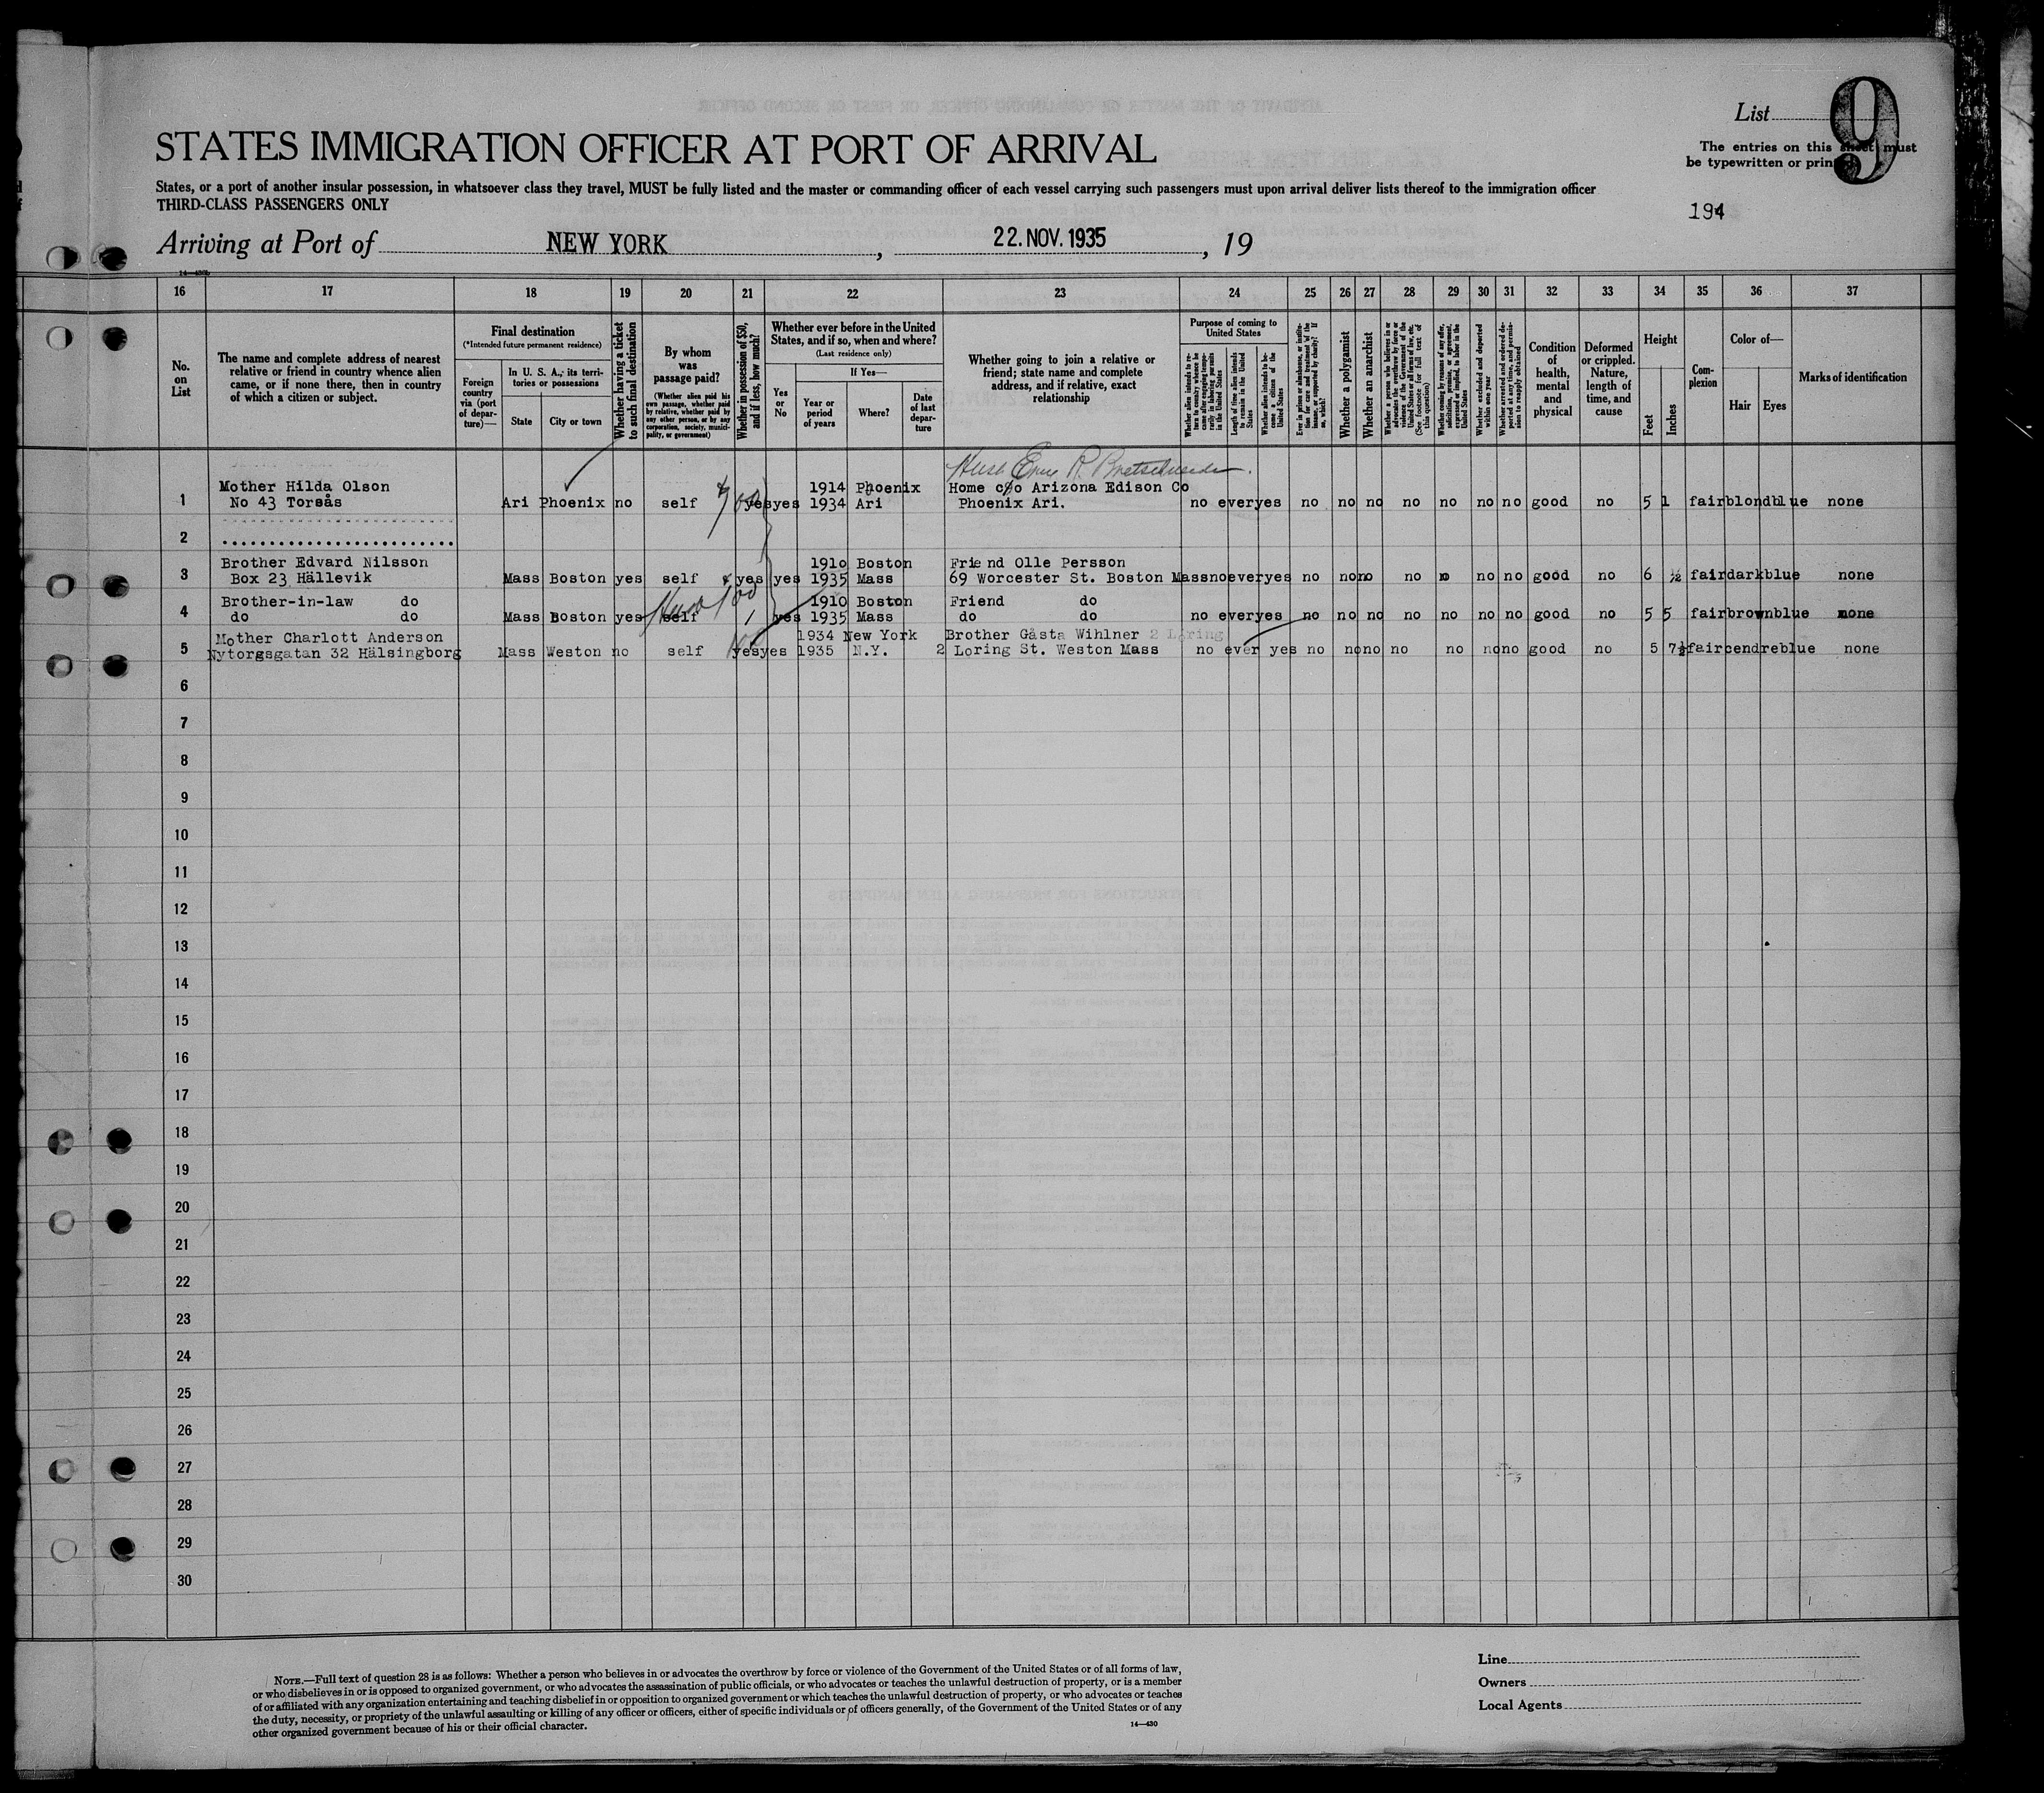 List 9
STATES IMMIGRATION OFFICER AT PORT OF ARRIVAL
The entries on this sheet must
be typewritten or printed
States, or a port of another insular possession, in whatsoever class they travel, MUST be fully listed and the master or commanding officer of each vessel carrying such passengers must upon arrival deliver lists thereof to the immigration officer
THIRD-CLASS PASSENGERS ONLY
194
Arriving at Port of NEW YORK, 22. NOV. 1935, 19
16 17 18 19 20 21 22 23 24 25 26 27 28 29 30 31 32 33 34 35 36 37
No. on List
The name and complete address of nearest relative or friend in country whence alien came, or if none there, then in country of which a citizen or subject.
Final destination
(*Intended future permanent residence)
Foreign country via (port of departure)—
In U. S. A., its territories or possessions
State
City or town
Whether having a ticket to such final destination
By whom was passage paid?
(Whether alien paid his own passage, whether paid by relative, whether paid by any other person, or by any corporation, society, municipality, or government)
Whether in possession of $50, and if less, how much?
Whether ever before in the United States, and if so, when and where?
(Last residence only)
Yes or No
If Yes—
Year or period of years
Where?
Date of last departure
Whether going to join a relative or friend; state name and complete address, and if relative, exact relationship
Purpose of coming to United States
Whether alien intends to return to country whence he came after engaging temporarily in laboring pursuits in the United States
Length of time alien intends to remain in the United States
Whether alien intends to become a citizen of the United States
Ever in prison or almshouse, or institution for care and treatment of the insane, or supported by charity? If so, which?
Whether a polygamist
Whether an anarchist
Whether a person who believes in or advocates the overthrow by force or violence of the Government of the United States or all forms of law, etc. (See footnote for full text of this question)
Whether coming by reason of any offer, solicitation, promise, or agreement, expressed or implied, to labor in the United States
Whether excluded and deported within one year
Whether arrested and ordered deported at any time, and permission to reapply obtained
Condition of health, mental and physical
Deformed or crippled. Nature, length of time, and cause
Height
Feet
Inches
Complexion
Color of—
Hair
Eyes
Marks of identification
Husb R.
Mother Hilda Olson 1914 Phoenix Home c/o Arizona Edison Co
1 No 43 Torsås Ari Phoenix no self yes yes 1934 Ari Phoenix Ari. no ever yes no no no no no no no good no 5 1 fair blond blue none
2
Brother Edvard Nilsson 1910 Boston Friend Olle Persson
3 Box 23 Hällevik Mass Boston yes self yes yes 1935 Mass 69 Worcester St. Boston Mass no ever yes no no no no no no no good no 6 ½ fair dark blue none
Brother-in-law do Husb 100 1910 Boston Friend do
4 do do Mass Boston yes self yes 1935 Mass do do no ever yes no no no no no no no good no 5 5 fair brown blue none
Mother Charlott Anderson 1934 New York Brother Gåsta Wihlner 2 Loring
5 Nytorgsgatan 32 Hälsingborg Mass Weston no self yes yes 1935 N.Y. 2 Loring St. Weston Mass no ever yes no no no no no no no good no 5 7½ fair cendre blue none
6
7
8
9
10
11
12
13
14
15
16
17
18
19
20
21
22
23
24
25
26
27
28
29
30
NOTE.—Full text of question 28 is as follows: Whether a person who believes in or advocates the overthrow by force or violence of the Government of the United States or of all forms of law,
or who disbelieves in or is opposed to organized government, or who advocates the assassination of public officials, or who advocates or teaches the unlawful destruction of property, or is a member
of or affiliated with any organization entertaining and teaching disbelief in or opposition to organized government or which teaches the unlawful destruction of property, or who advocates or teaches
the duty, necessity, or propriety of the unlawful assaulting or killing of any officer or officers, either of specific individuals or of officers generally, of the Government of the United States or of any
other organized government because of his or their official character.
14—430
Line
Owners
Local Agents